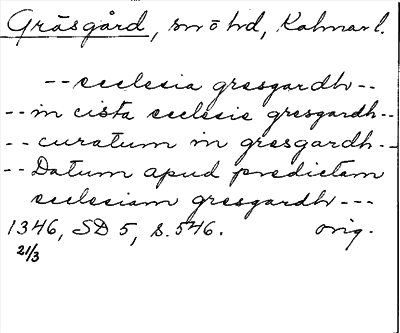 Gräsgård, sn ö hd, Kalmar l.
-- ecclesia gresgardh --
-- in cista ecclesie gresgardh --
-- curatum in gresgardh --
-- Datum apud predictam
ecclesiam gresgardh ---
1346, SD 5, s. 546. orig.
21/3